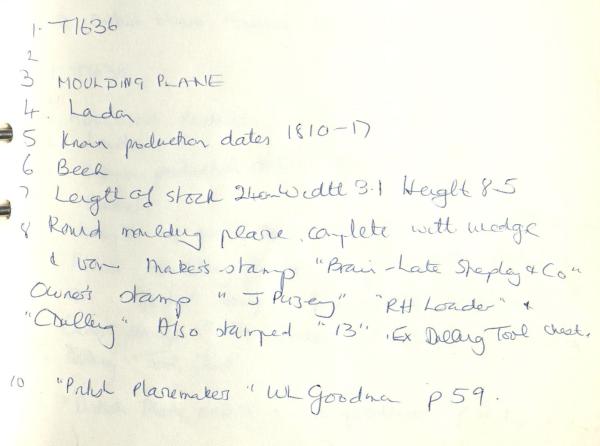 1. T1636
2
3 MOULDING PLANE
4. London
5 Known production dates 1810-17
6 Beech
7 Length of stock 24cm Width 3.1 Height 8.5
8 Round moulding plane. complete with wedge
& iron Maker's stamp " - Late Shepley & Co"
Owner's stamp " J Pusey" "RH Loader" &
Also stamped "13". Ex Tool chest.
10 "British Planemakers" WL Goodman p 59.